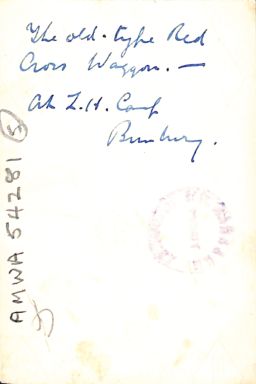 The old-type Red
Cross Waggon. —
At L.H. Camp
Bunbury.
AMWA 54281
5